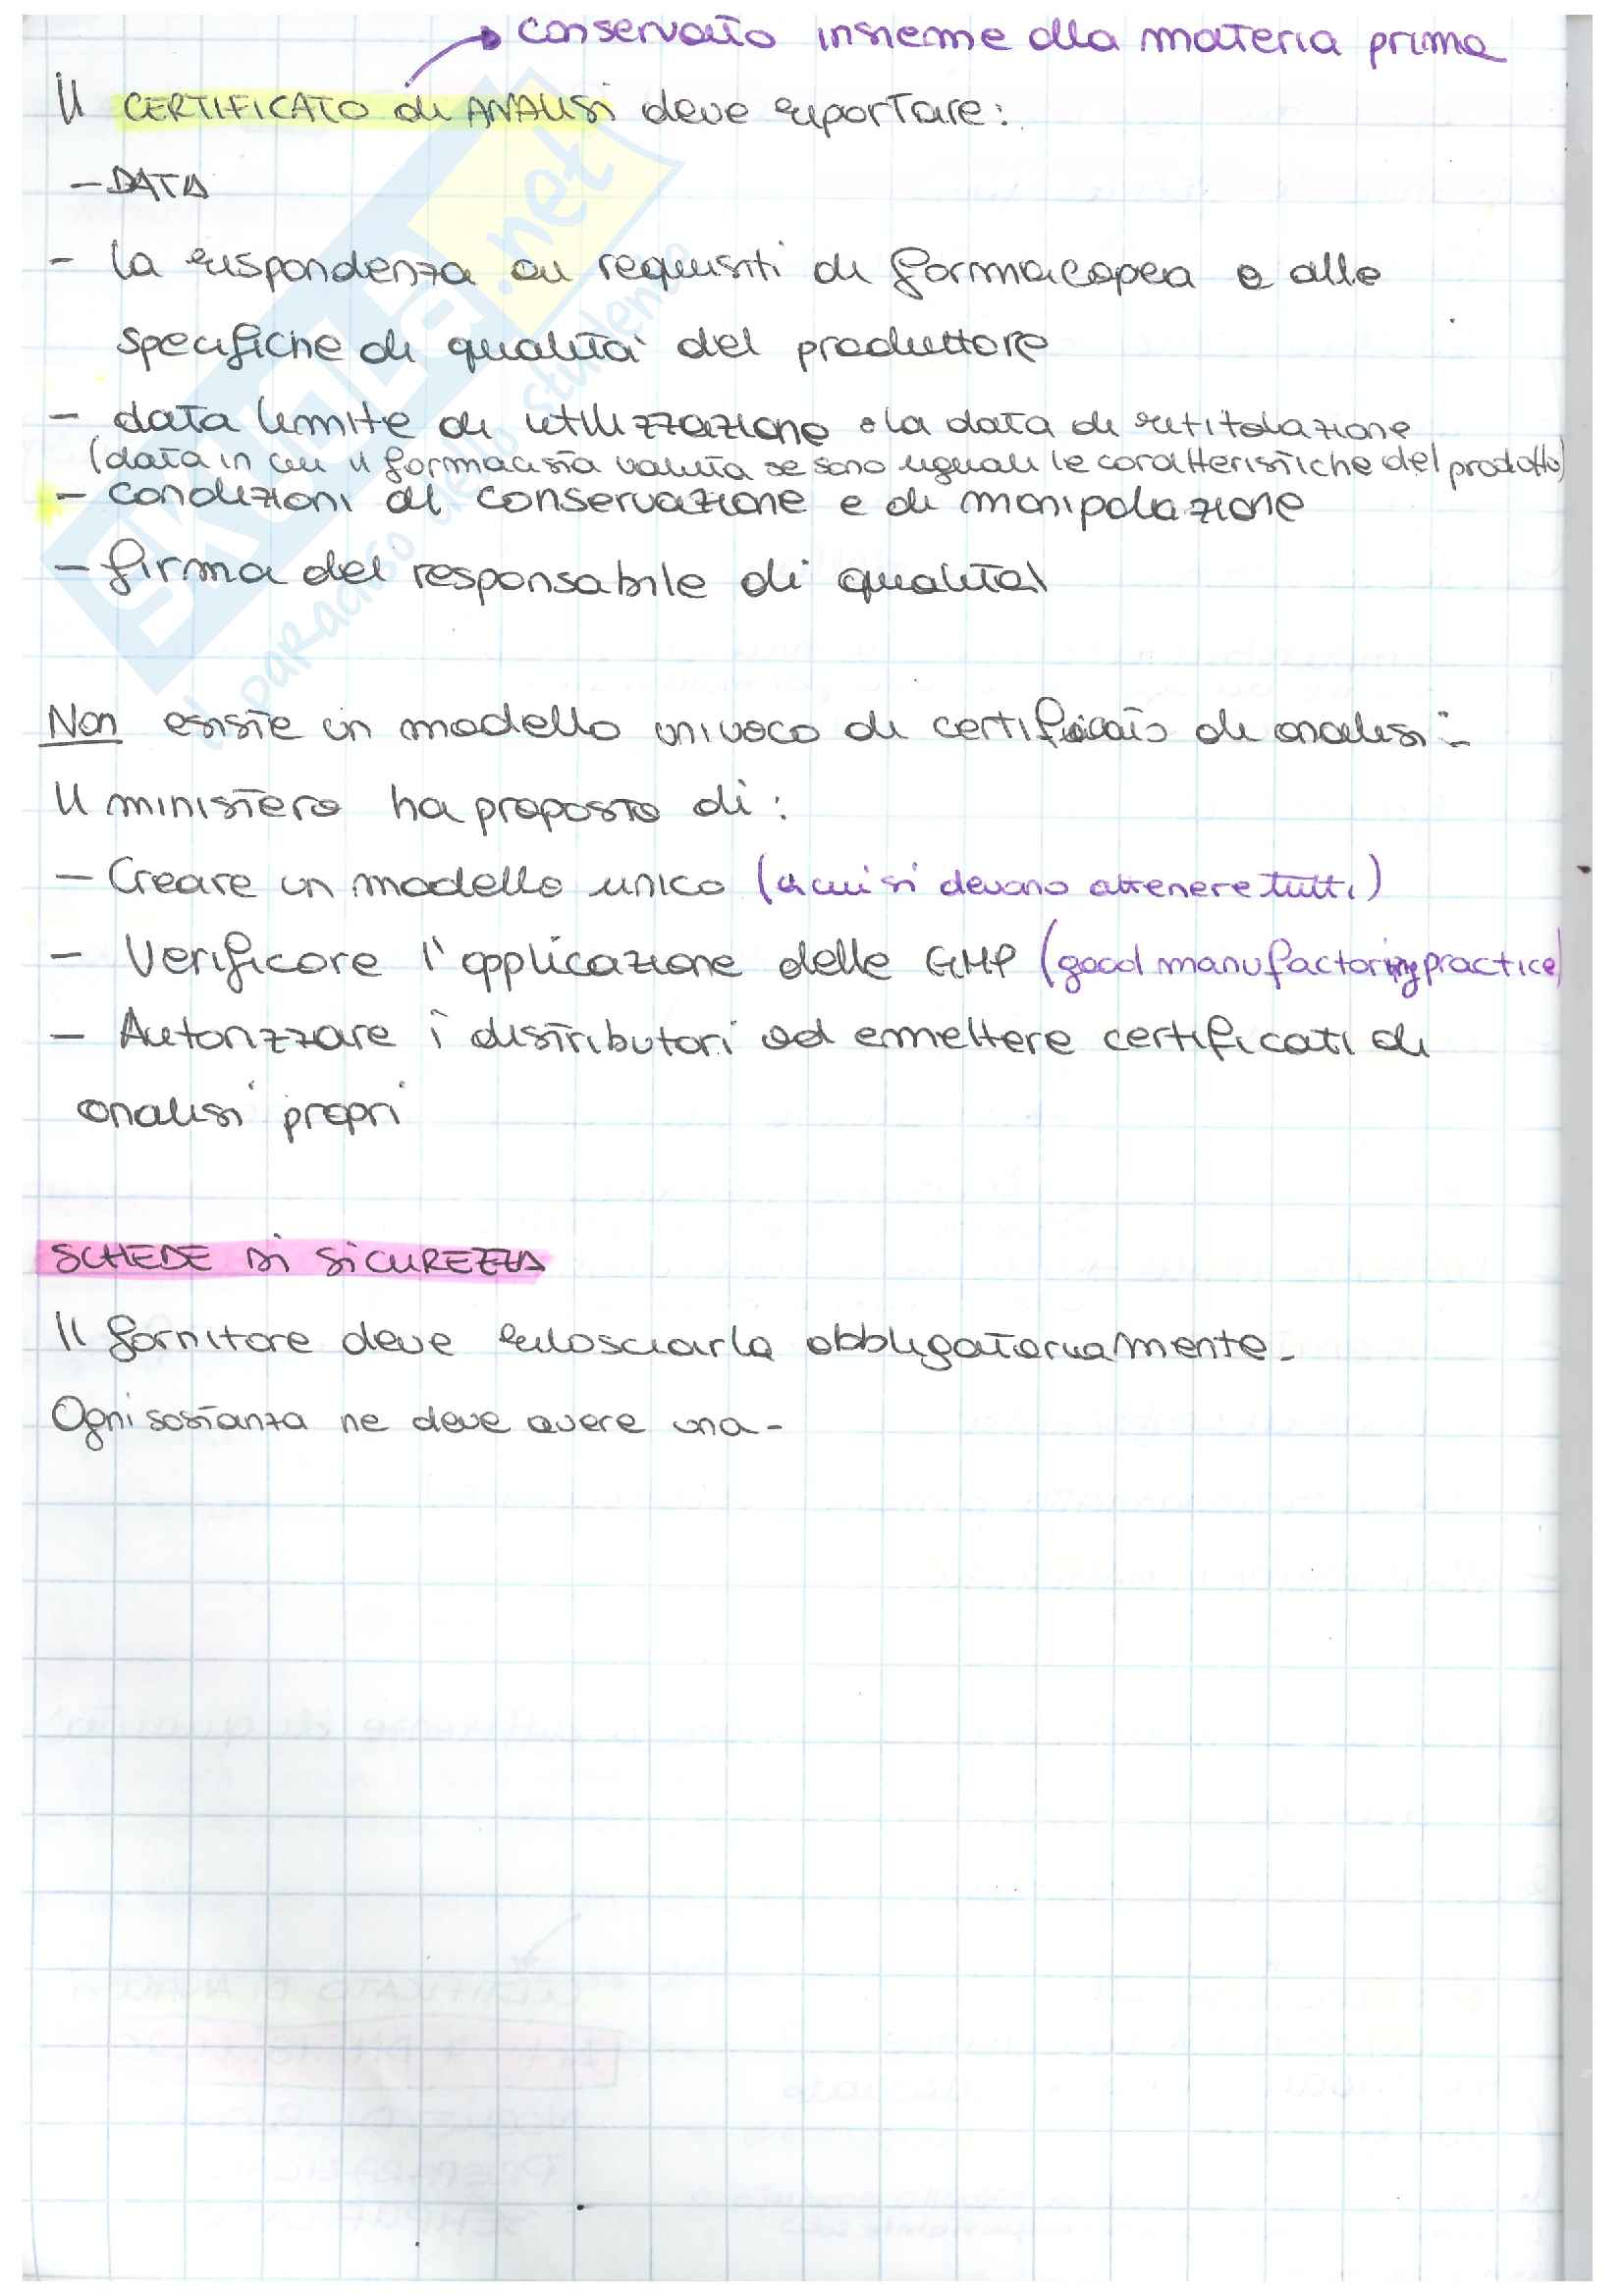 conservato insieme alla materia prima
Il CERTIFICATO di ANALISI deve riportare:
- DATA
- la rispondenza ai requisiti di farmacopea e alle
specifiche di qualità del produttore
- data limite di utilizzazione o la data di retitolazione
(data in cui il farmacista valuta se sono uguali le caratteristiche del prodotto)
- condizioni di conservazione e di manipolazione
- firma del responsabile di qualità
Non esiste un modello univoco di certificato di analisi:
Il ministero ha proposto di:
- Creare un modello unico (a cui si devono attenere tutti)
- Verificare l'applicazione delle GMP (good manufactoring practice)
- Autorizzare i distributori ad emettere certificati di
analisi propri
SCHEDE DI SICUREZZA
Il fornitore deve rilasciarla obbligatoriamente.
Ogni sostanza ne deve avere una.
SKUOLA.net
il paradiso dello studente